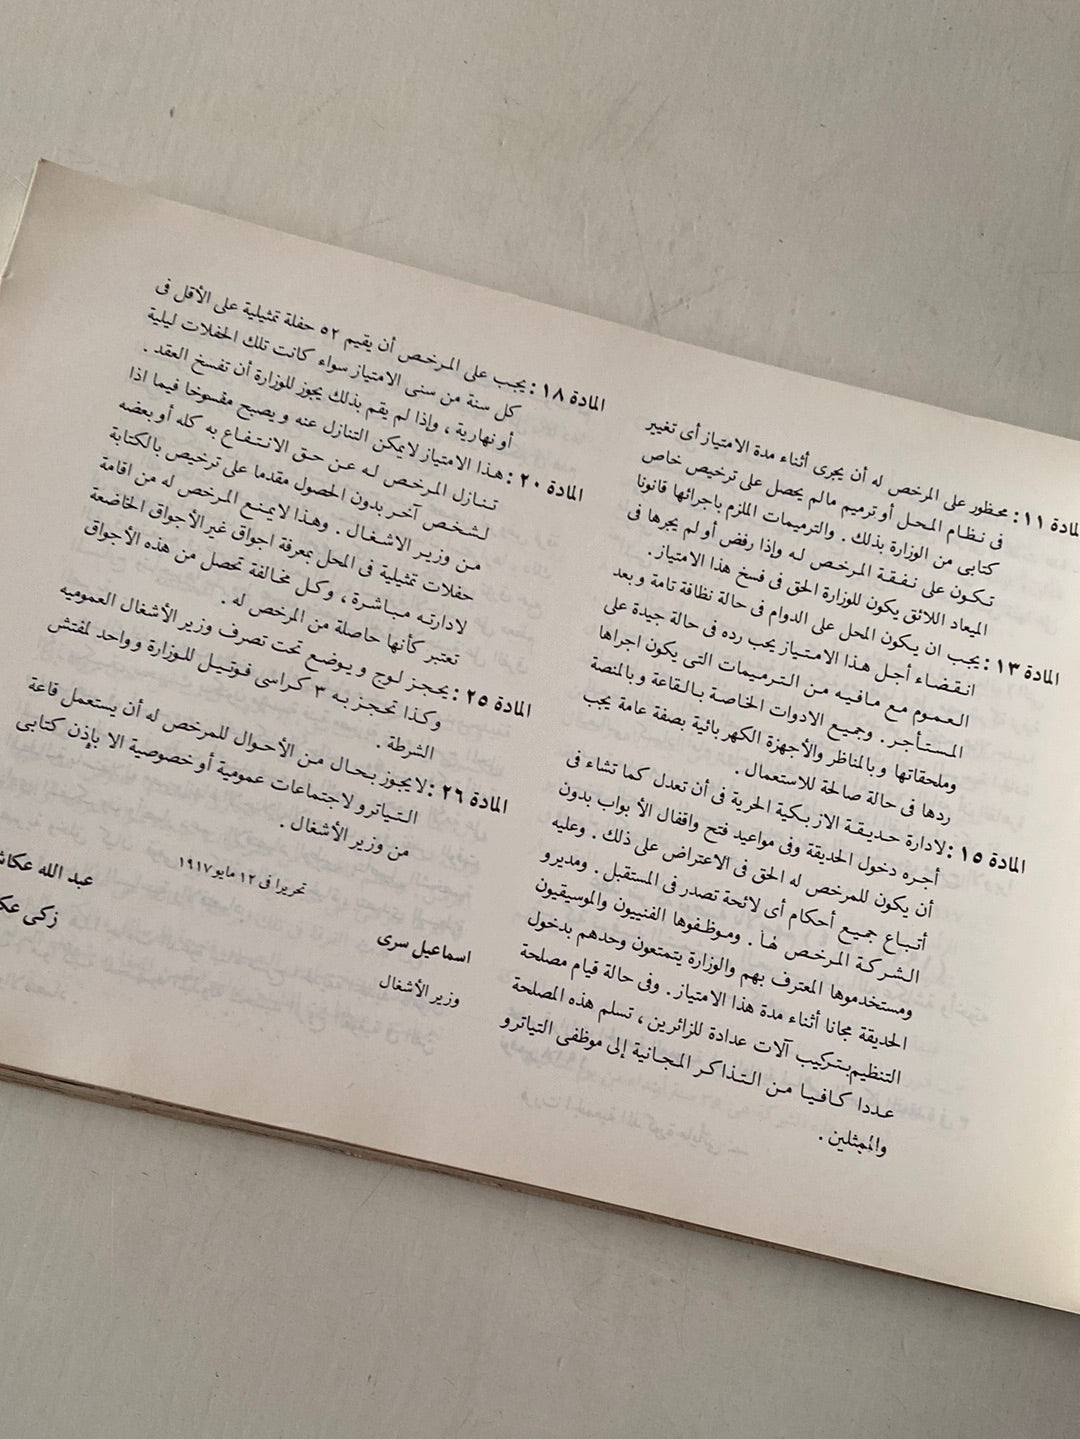 المادة ١١ : محظور على المرخص له أن يجرى أثناء مدة الامتياز أى تغيير
فى نظام المحل أو ترميم مالم يحصل على ترخيص خاص
كتابى من الوزارة بذلك . والترميمات الملزم باجرائها قانونا
تكون على نفقة المرخص له وإذا رفض أو لم يجرها فى
الميعاد اللائق يكون للوزارة الحق فى فسخ هذا الامتياز .
المادة ١٣ : يجب ان يكون المحل على الدوام فى حالة نظافة تامة وبعد
انقضاء أجل هذا الامتياز يجب رده فى حالة جيدة على
العموم مع مافيه من الترميمات التى يكون اجراها
المستأجر . وجميع الادوات الخاصة بالقاعة وبالمنصة
وملحقاتها وبالمناظر والأجهزة الكهربائية بصفة عامة يجب
ردها فى حالة صالحة للاستعمال .
المادة ١٥ : لادارة حديقة الازبكية الحرية فى أن تعدل كما تشاء فى
أجره دخول الحديقة وفى مواعيد فتح واقفال الأبواب بدون
أن يكون للمرخص له الحق فى الاعتراض على ذلك . وعليه
أتباع جميع أحكام أى لائحة تصدر فى المستقبل . ومديرو
الشركة المرخص لها . وموظفوها الفنييون والموسيقيون
ومستخدموها المعترف بهم والوزارة يتمتعون وحدهم بدخول
الحديقة مجانا أثناء مدة هذا الامتياز . وفى حالة قيام مصلحة
التنظيم بتركيب آلات عدادة للزائرين ، تسلم هذه المصلحة
عددا كافيا من التذاكر المجانية إلى موظفى التياترو
والممثلين .
المادة ١٨ : يجب على المرخص أن يقيم ٥٢ حفلة تمثيلية على الأقل فى
كل سنة من سنى الامتياز سواء كانت تلك الحفلات ليلية
أو نهارية ، وإذا لم يقم بذلك يجوز للوزارة أن تفسخ العقد .
المادة ٢٠ : هذا الامتياز لايمكن التنازل عنه ويصبح مفسوخا فيما اذا
تنازل المرخص له عن حق الانتفاع به كله أو بعضه
لشخص آخر بدون الحصول مقدما على ترخيص بالكتابة
من وزير الاشغال . وهذا لايمنع المرخص له من اقامة
حفلات تمثيلية فى المحل بمعرفة اجواق غير الأجواق الخاضعة
لادارته مباشرة ، وكل مخالفة تحصل من هذه الأجواق
تعتبر كأنها حاصلة من المرخص له .
المادة ٢٥ : يحجز لوج ويوضع تحت تصرف وزير الأشغال العموميه
وكذا تحجز به ٣ كراسى فوتيل للوزارة وواحد لمفتش
الشرطة .
المادة ٢٦ : لايجوز بحال من الأحوال للمرخص له أن يستعمل قاعة
التياترو لاجتماعات عمومية أو خصوصية الا بإذن كتابى
من وزير الأشغال .
تحريرا فى ١٢ مايو ١٩١٧
اسماعيل سرى
وزير الأشغال
عبد الله
زكى